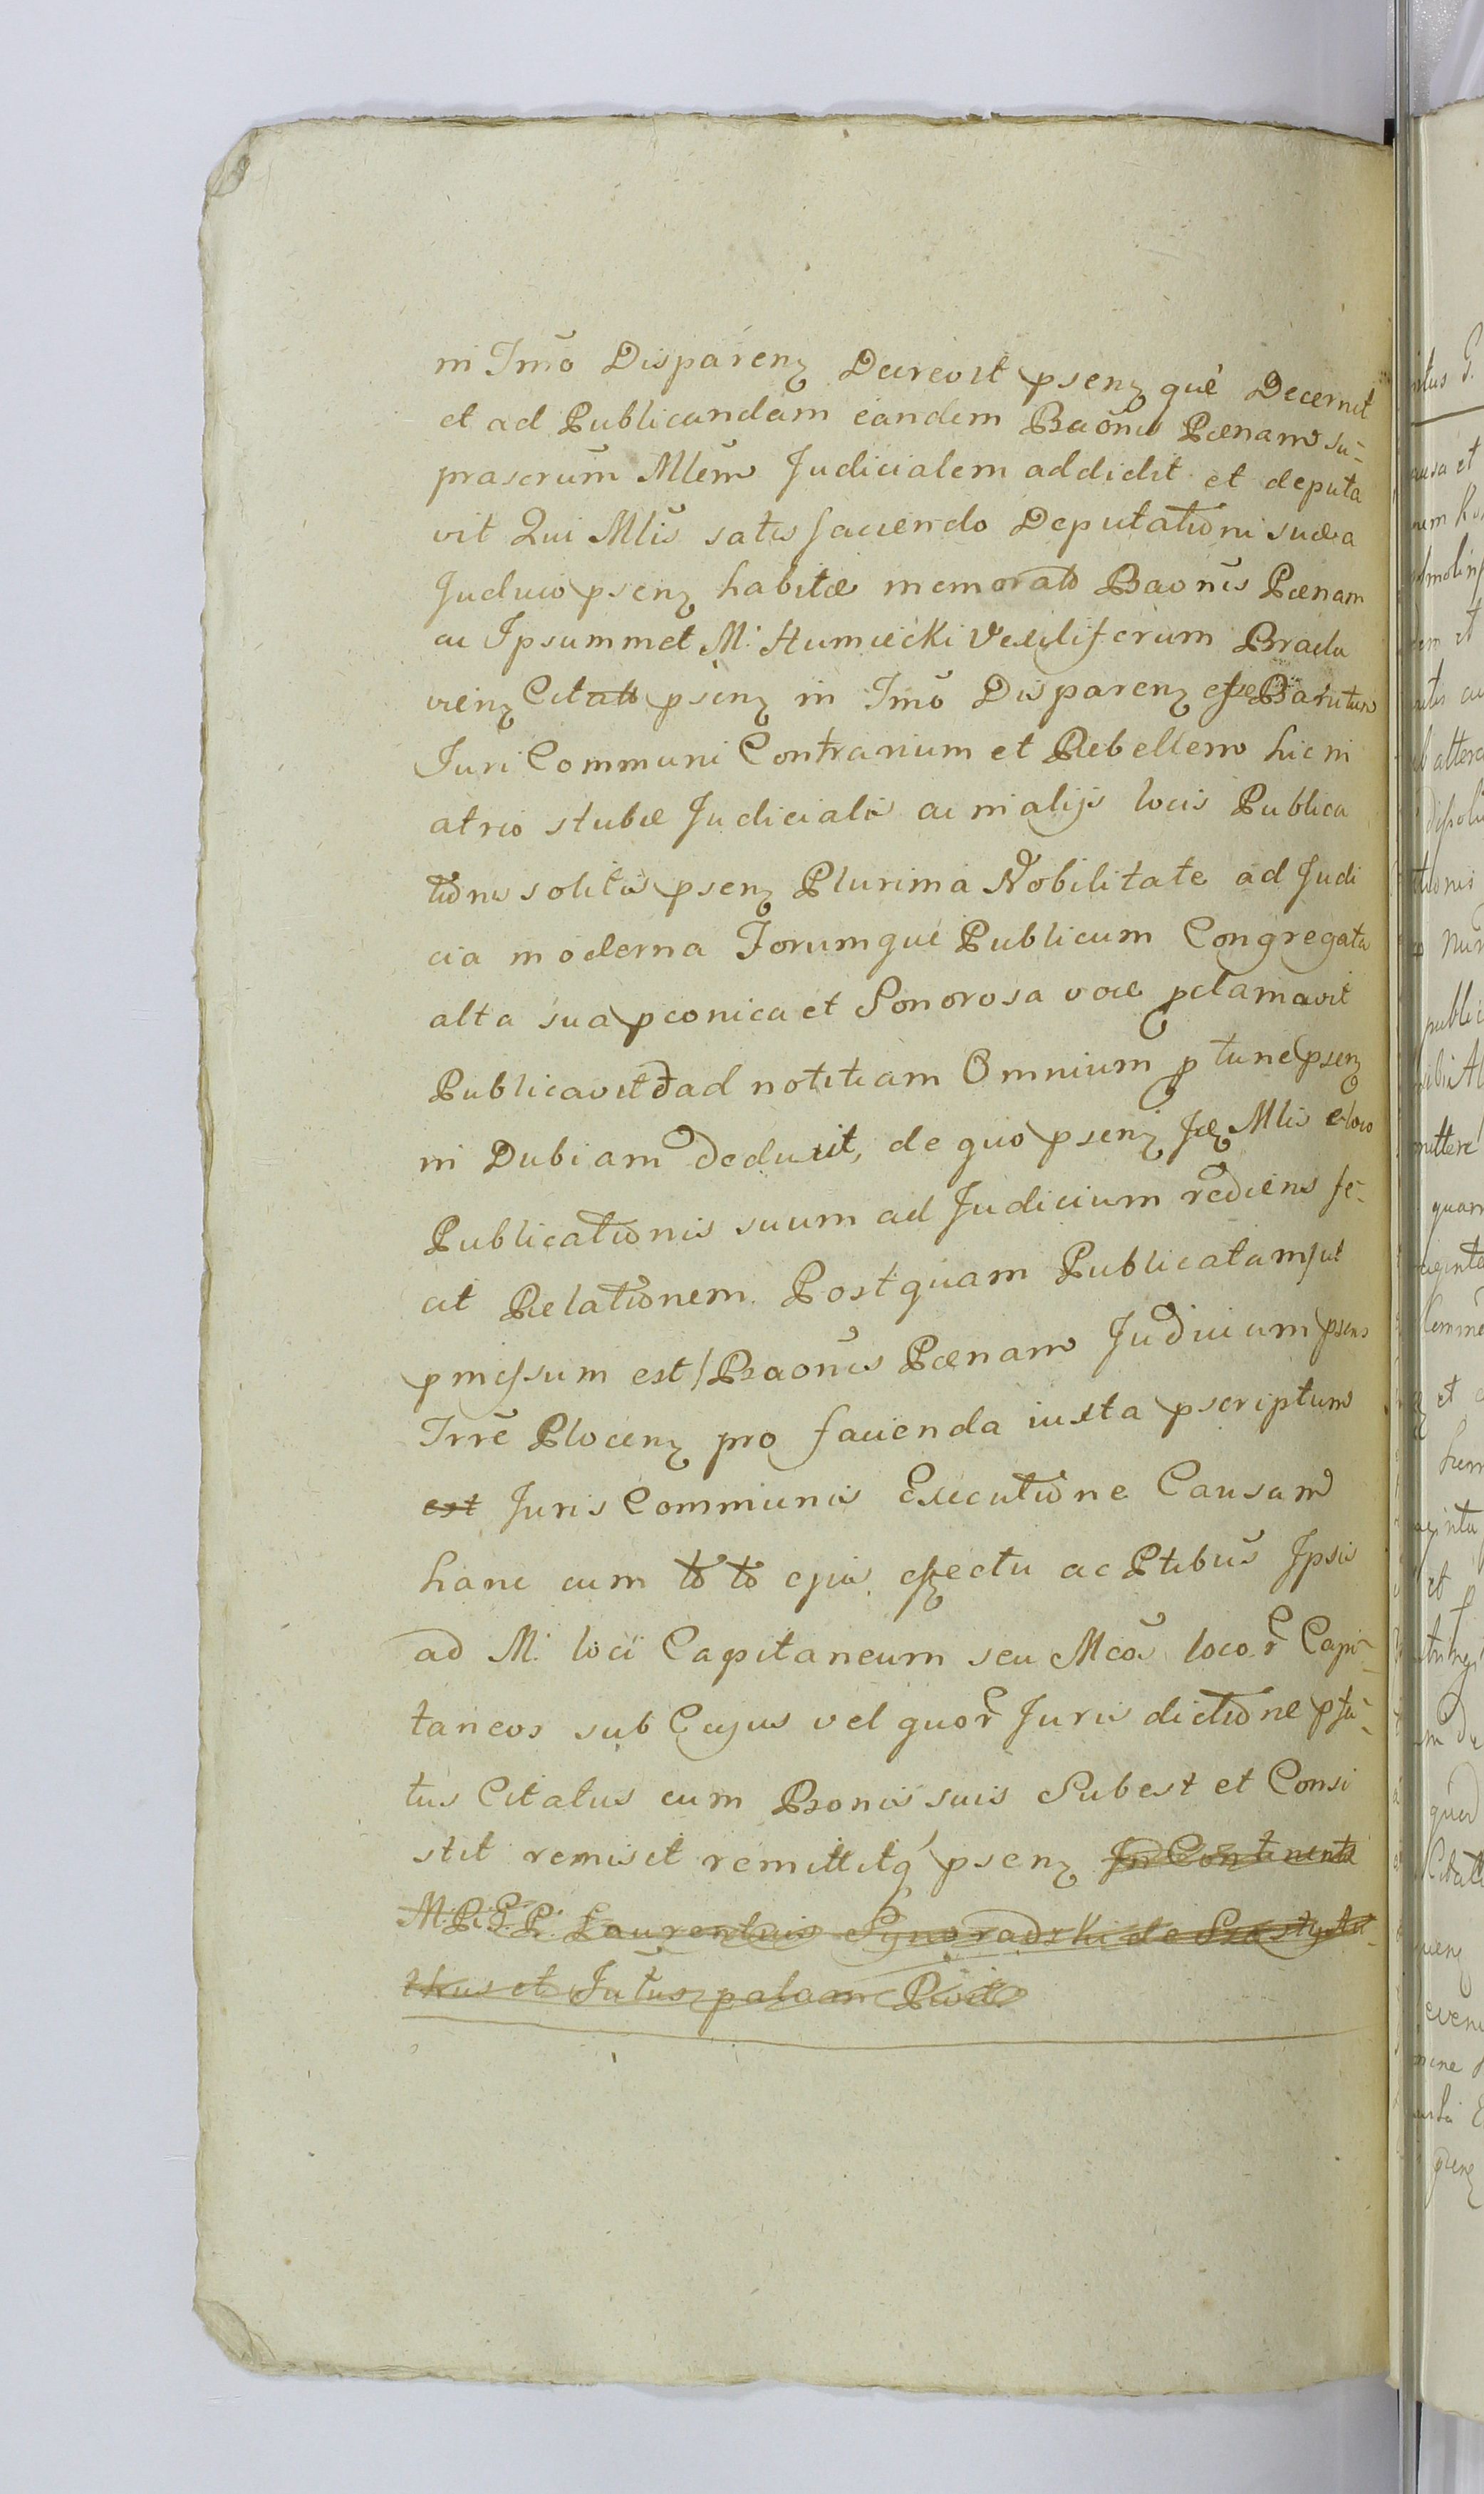 in Tmo Disparenz Decrevit psenz que Decernit
et ad Publicandam eandem Baonis Pænam su-
prascrum Mlem Judicialem addidit et deputa
vit Qui Mlis satis faciendo Deputationi suæ a
Judicio psenz habitæ memorato Baonis Pænam
ac Ipsummet M. Humiecki Vexiliferum Bracla
vienz Citatt psenz in Tmo Disparenz esse Banitum
Juri Communi Contrarium et Rebellem hic in
atrio stubæ Judicialis ac in alijs locis Publica
tionis solitis psenz Plurima Nobilitate ad Judi
cia moderna Forumque Publicum Congregata
alta sua pconica et Sonorosa voce pclamavit
Publicavit ad notitiam Omnium p tunc psenz
in Dubiam deduxit, de quo psenz Mlis e loco
Publicationis suum ad Judicium rediens fe-
cit Relationem. Postquam Publicatam /ut
pmissum est/ Baonis Pænam Judicium psens
Trre Plocenz pro facienda iuxta pscriptum
est Juris Communis Executione Causam
hanc cum to to ejus effectu ac Ptibus Ipsis
ad M. loci Capitaneum seu Mcos locor Capi-
taneos sub Cujus vel quor Juris dictione pfa-
tus Citatus cum Bonis suis Subest et Consi
stit remisit remittitq psenz In Continenti
M. P. G. P. Laurentius Sgnoradzki de
et Jutus palam